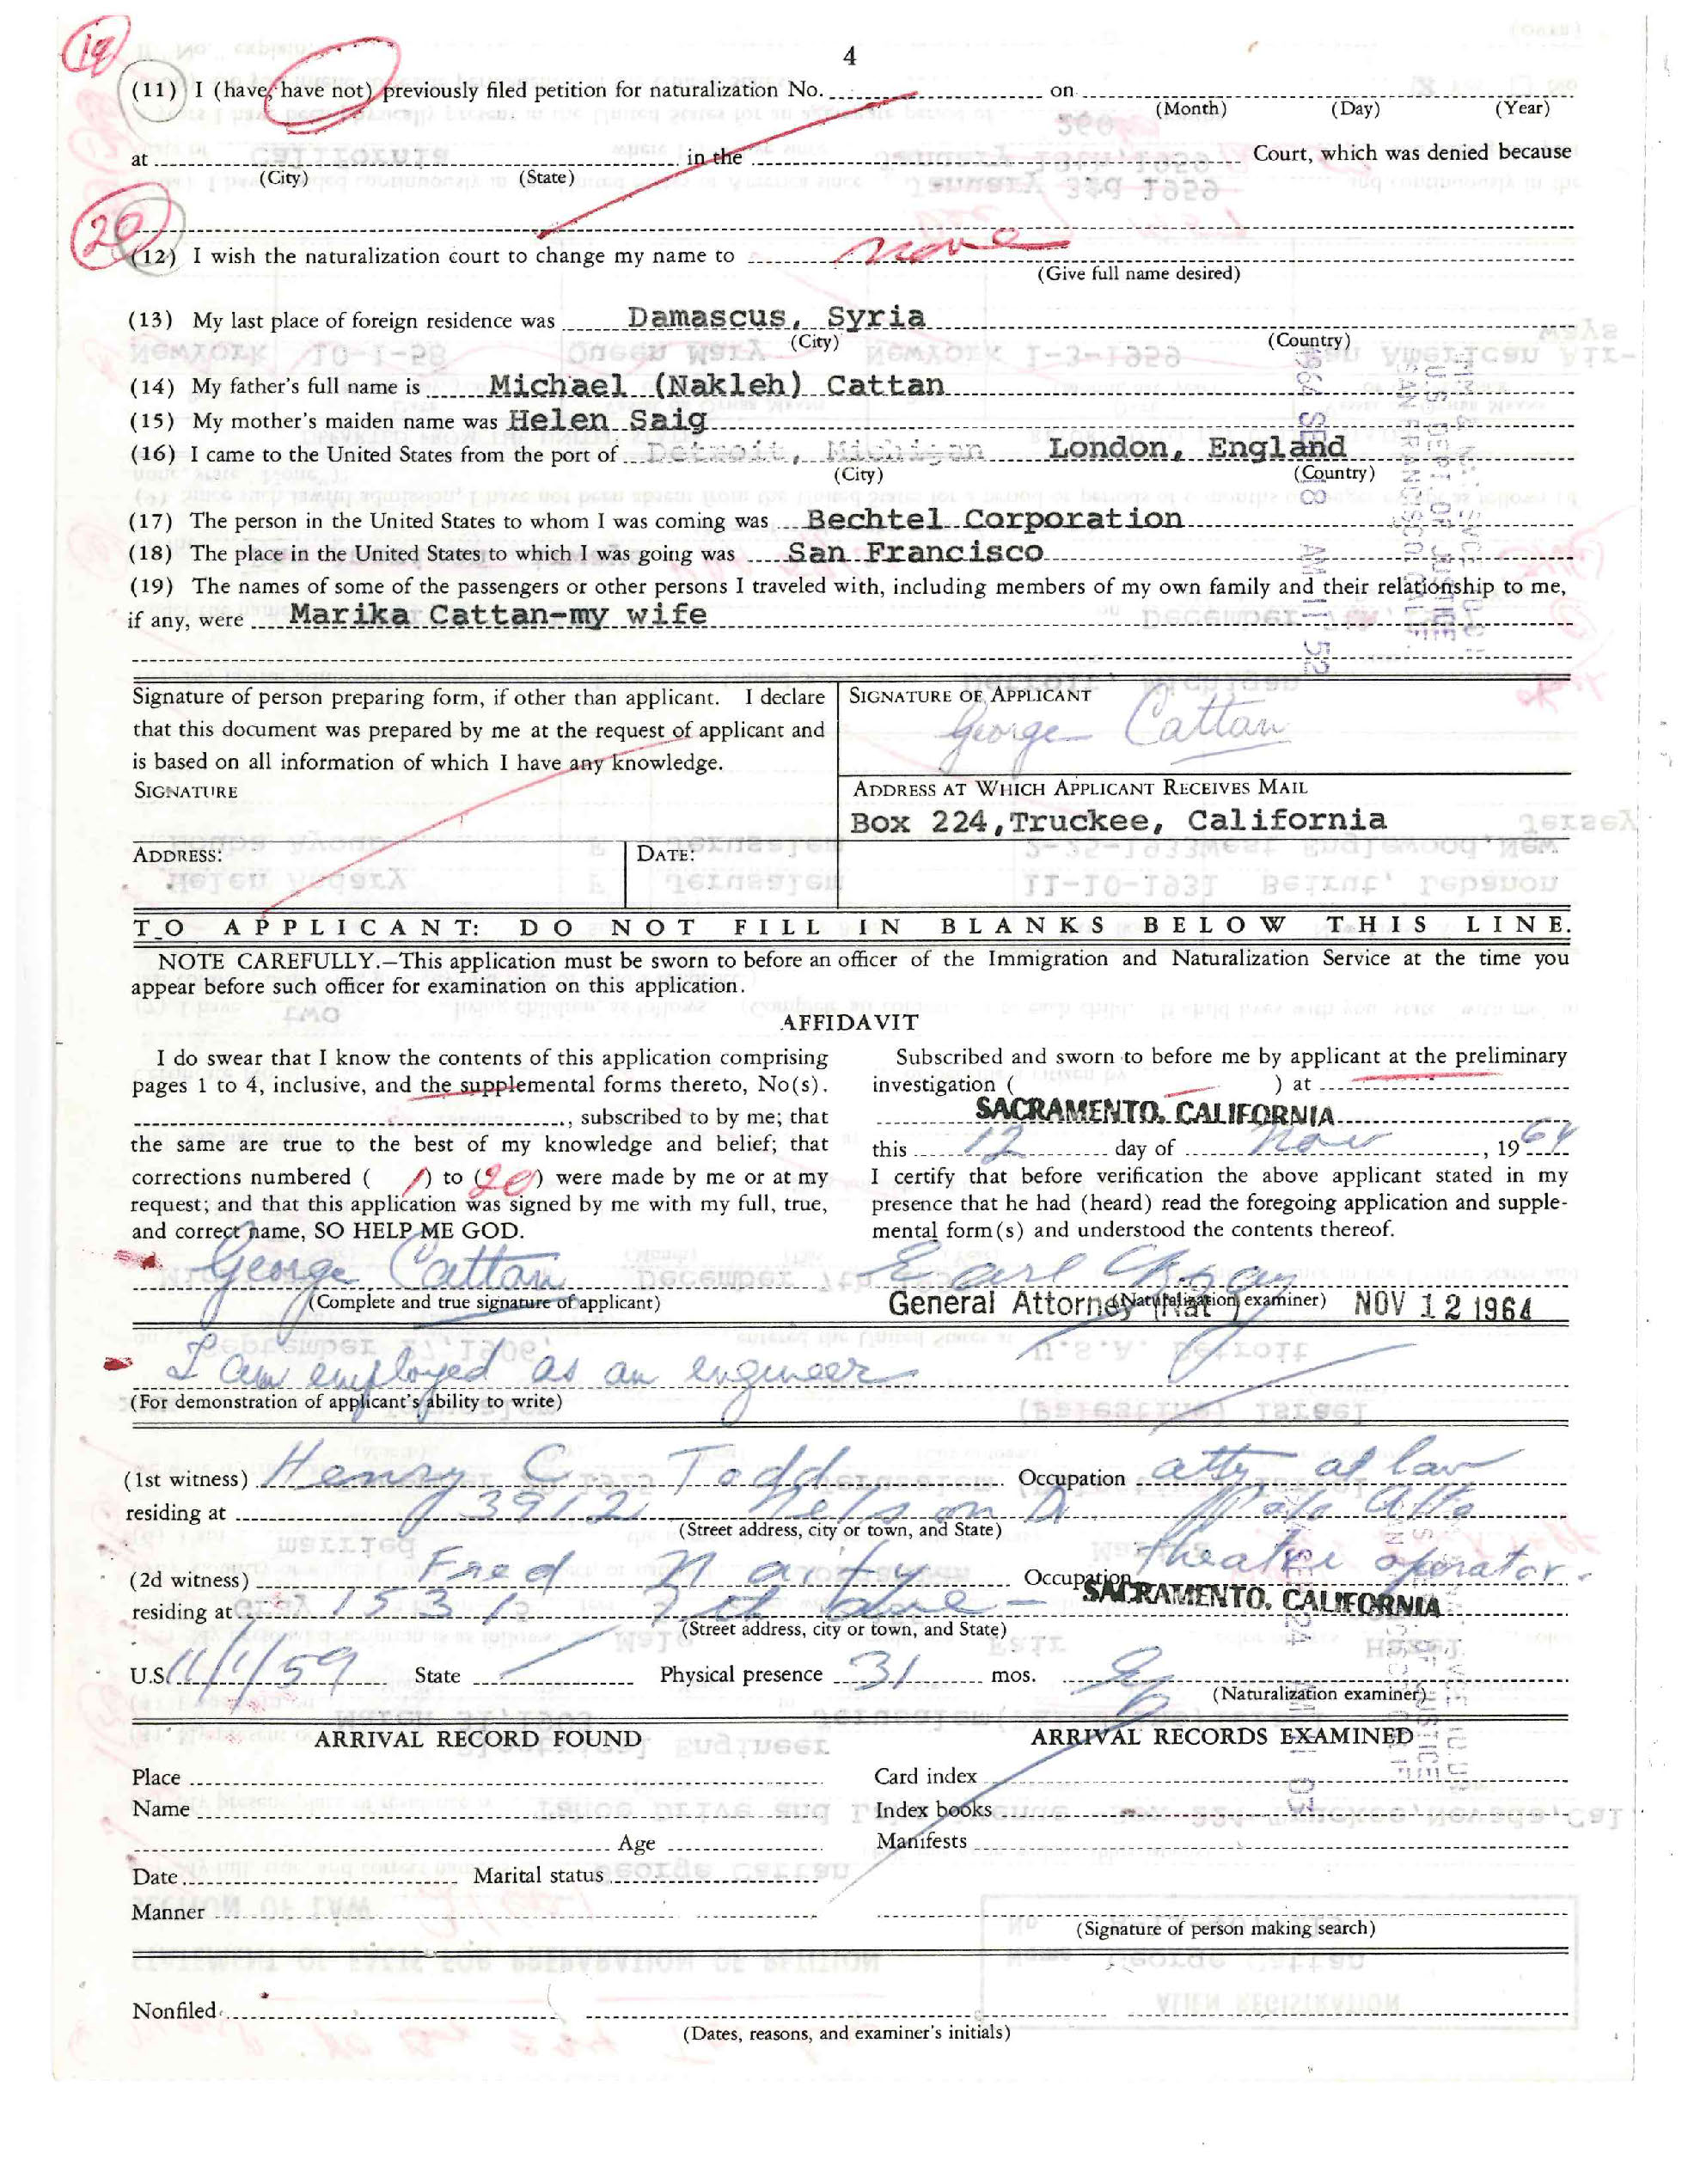 19
4
(11) I (have, have not) previously filed petition for naturalization No. on
(Month) (Day) (Year)
at in the Court, which was denied because
(City) (State)
20
(12) I wish the naturalization court to change my name to none
(Give full name desired)
(13) My last place of foreign residence was Damascus, Syria
(City) (Country)
(14) My father's full name is Michael (Nakleh) Cattan
(15) My mother's maiden name was Helen Saig
(16) I came to the United States from the port of Detroit, Michigan London, England
(City) (Country)
(17) The person in the United States to whom I was coming was Bechtel Corporation
(18) The place in the United States to which I was going was San Francisco
(19) The names of some of the passengers or other persons I traveled with, including members of my own family and their relationship to me,
if any, were Marika Cattan-my wife
Signature of person preparing form, if other than applicant. I declare
that this document was prepared by me at the request of applicant and
is based on all information of which I have any knowledge.
SIGNATURE
SIGNATURE OF APPLICANT
George Cattan
ADDRESS AT WHICH APPLICANT RECEIVES MAIL
Box 224, Truckee, California
ADDRESS: DATE:
TO APPLICANT: DO NOT FILL IN BLANKS BELOW THIS LINE.
NOTE CAREFULLY.—This application must be sworn to before an officer of the Immigration and Naturalization Service at the time you
appear before such officer for examination on this application.
AFFIDAVIT
I do swear that I know the contents of this application comprising
pages 1 to 4, inclusive, and the supplemental forms thereto, No(s).
, subscribed to by me; that
the same are true to the best of my knowledge and belief; that
corrections numbered ( 1) to (20) were made by me or at my
request; and that this application was signed by me with my full, true,
and correct name, SO HELP ME GOD.
George Cattan
(Complete and true signature of applicant)
Subscribed and sworn to before me by applicant at the preliminary
investigation ( ) at
SACRAMENTO, CALIFORNIA
this 12 day of Nov, 1964
I certify that before verification the above applicant stated in my
presence that he had (heard) read the foregoing application and supple-
mental form(s) and understood the contents thereof.
Earl
General Attorney (Nat) (Naturalization examiner) NOV 12 1964
I am employed as an engineer
(For demonstration of applicant's ability to write)
(1st witness) Henry C Todd Occupation atty at law
residing at 3912 Nelson Dr Palo Alto
(Street address, city or town, and State)
(2d witness) Fred Occupation theatre operator.
residing at 1531 Ave SACRAMENTO, CALIFORNIA
(Street address, city or town, and State)
U.S. 11/1/59 State Physical presence 31 mos.
(Naturalization examiner)
ARRIVAL RECORD FOUND
Place
Name
Age
Date Marital status
Manner
ARRIVAL RECORDS EXAMINED
Card index
Index books
Manifests
(Signature of person making search)
Nonfiled
(Dates, reasons, and examiner's initials)